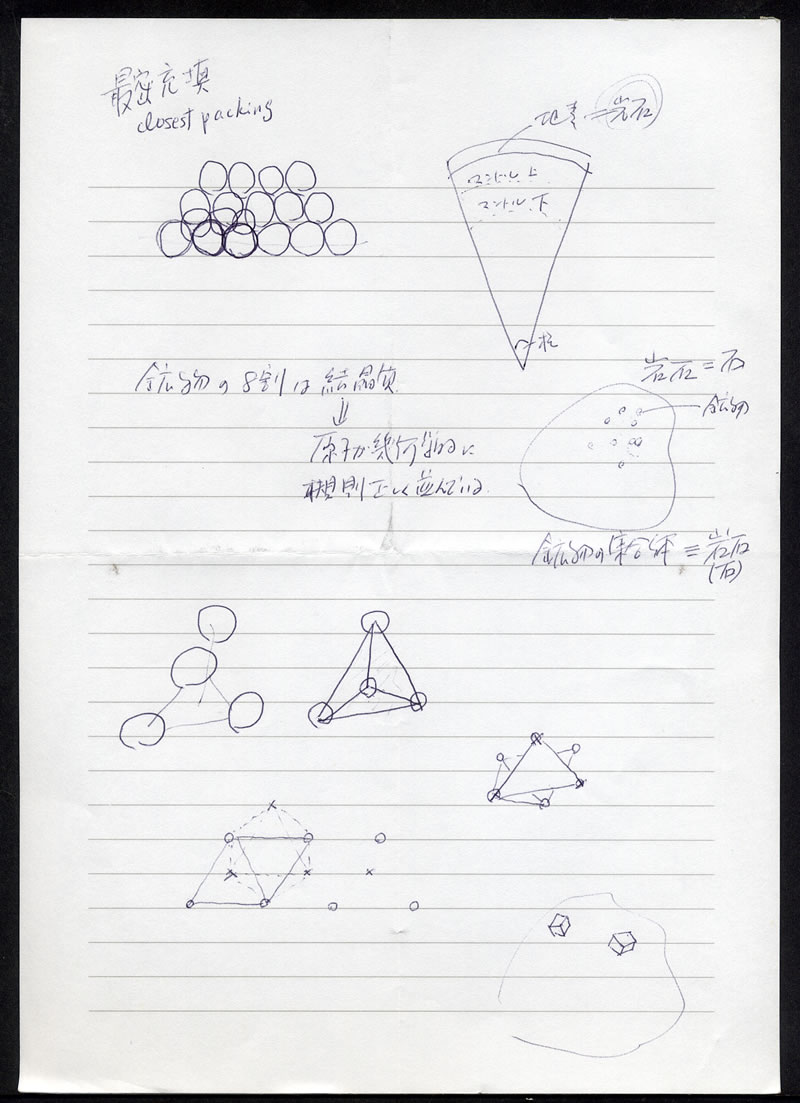 最密充填
closest packing
地表 = 岩石
マントル 上
マントル 下
核
鉱物の8割は結晶質
⇓
原子が幾何学的に
規則正しく並んでいる.
岩石 = 石
鉱物
鉱物の集合体 ≡ 岩石
(石)